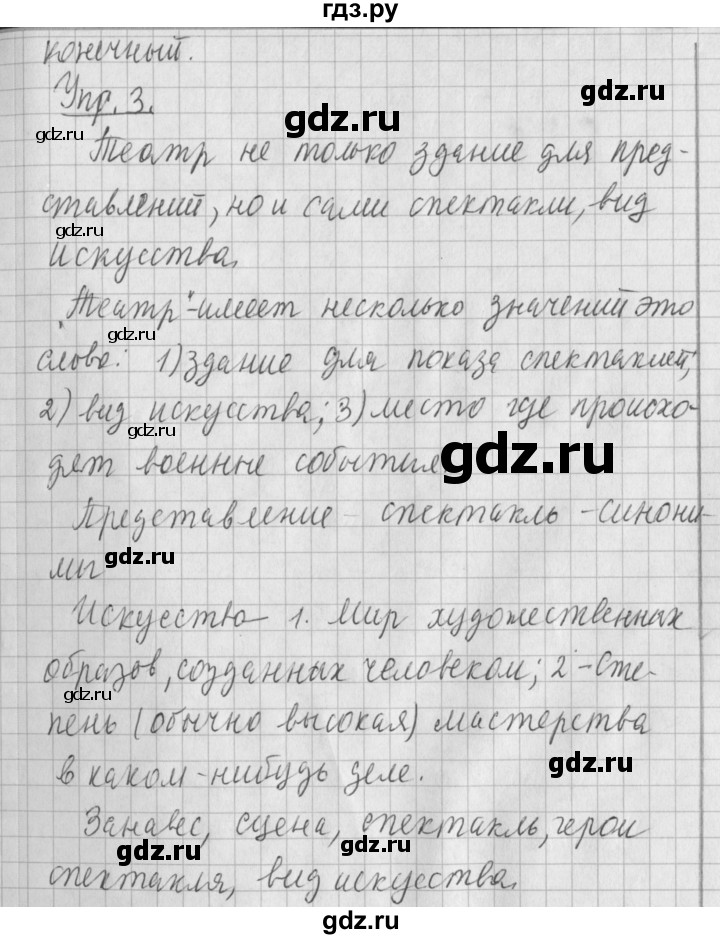 гдз.ру
конечный.
Упр. 3.
Театр не только здание для пред-
ставлений, но и сами спектакли, вид
искусства.
"Театр"-имеет несколько значений это
слово: 1) здание для показа спектаклей;
2) вид искусства; 3) место где происхо-
дят военные события
Представление - спектакль - синони-
мы
Искусство - 1. Мир художественных
образов, созданных человеком; 2 - Сте-
пень (обычно высокая) мастерства
в каком-нибудь деле.
Занавес, сцена, спектакль, герои
спектакля, вид искусства.
gdz.ru
gdz.ru
gdz.ru
gdz.ru
gdz.ru
gdz.ru
gdz.ru
gdz.ru
gdz.ru
gdz.ru
gdz.ru
gdz.ru
gdz.ru
gdz.ru